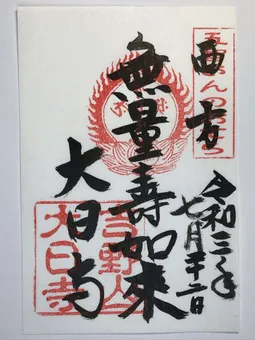 西方
令和三年
七月廿二日
無量壽如来
大日寺
吉野山
大日寺